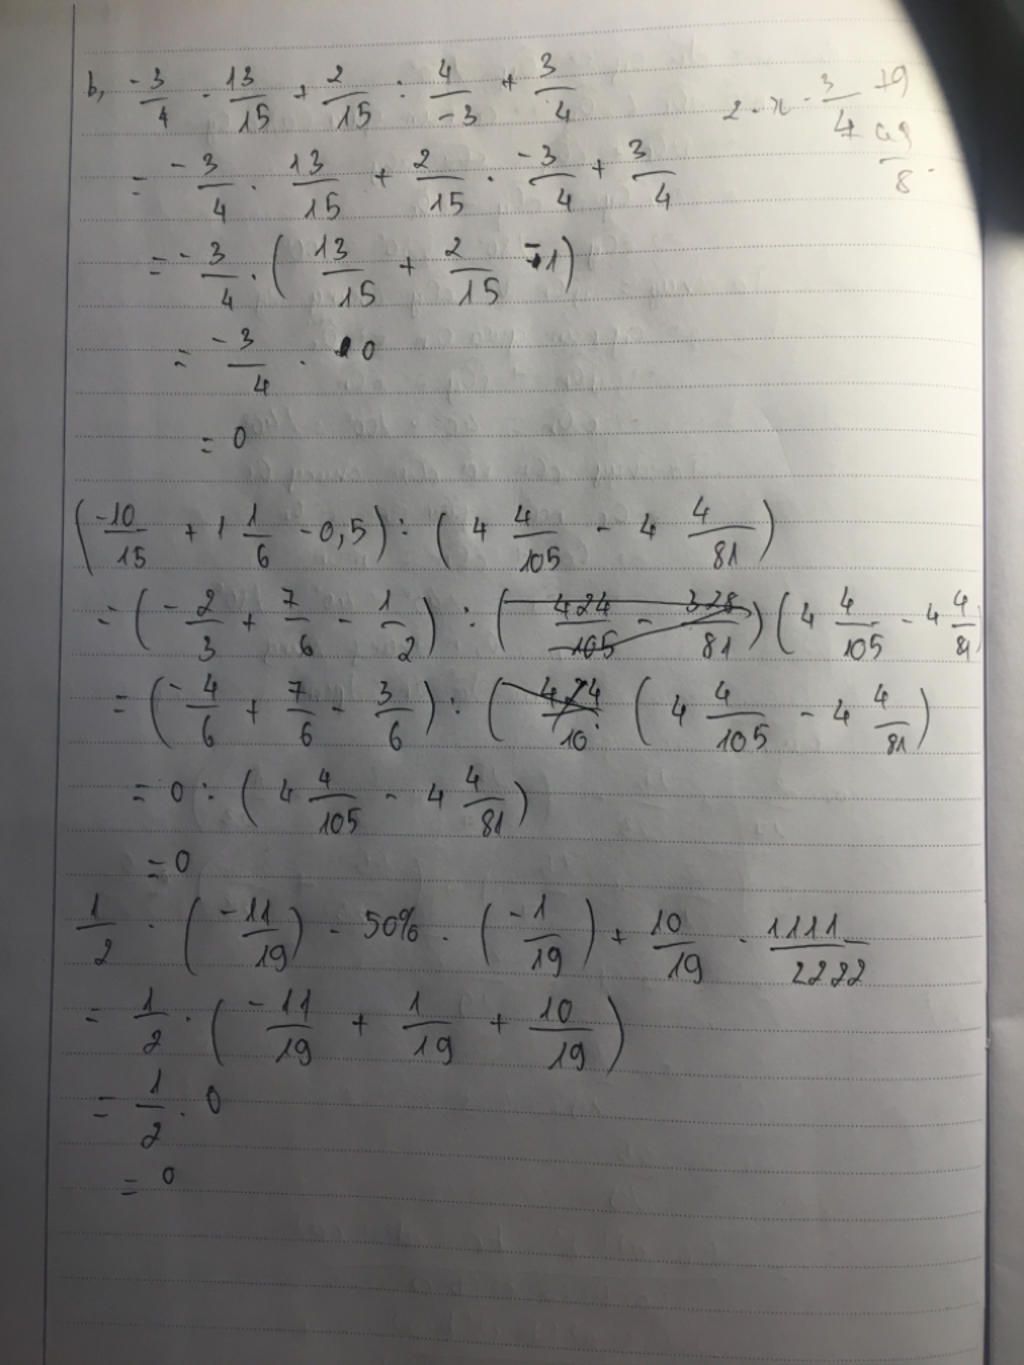 b, -3/4 . 13/15 + 2/15 : 4/-3 + 3/4
= -3/4 . 13/15 + 2/15 . -3/4 + 3/4
= -3/4 . (13/15 + 2/15 - 1)
= -3/4 . 0
= 0
(-10/15 + 1 1/6 - 0,5) : (4 4/105 - 4 4/81)
= (-2/3 + 7/6 - 1/2) : (424/105 - 328/81) (4 4/105 - 4 4/81)
= (-4/6 + 7/6 - 3/6) : ( (4 4/105 - 4 4/81)
= 0 : (4 4/105 - 4 4/81)
= 0
1/2 . (-11/19) - 50% . (-1/19) + 10/19 . 1111/2222
= 1/2 . (-11/19 + 1/19 + 10/19)
= 1/2 . 0
= 0